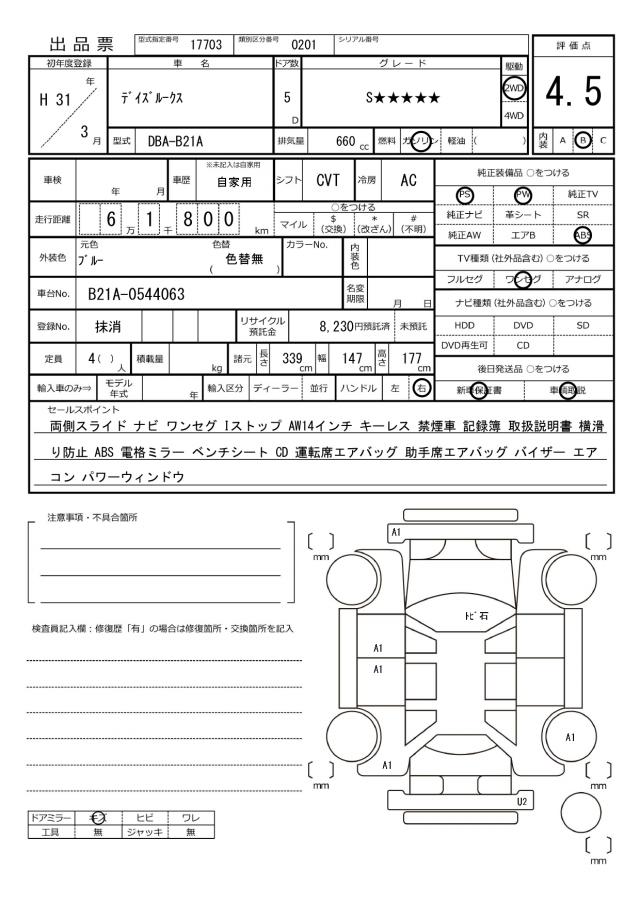 出品票
型式指定番号 17703 類別区分番号 0201 シリアル番号
評価点
4.5
内装 A B C
初年度登録 車名 ドア数 グレード 駆動
H 31 年 3 月
ﾃﾞｲｽﾞﾙｰｸｽ
5 D
S★★★★★
2WD
4WD
型式 DBA-B21A 排気量 660 cc 燃料 ガソリン 軽油 ( )
車検 年 月 車歴 ※未記入は自家用 自家用 シフト CVT 冷房 AC
走行距離 6 万 1 千 8 0 0 km
○をつける
マイル $(交換) *(改ざん) #(不明)
外装色 元色 ﾌﾞﾙｰ 色替 ( 色替無 ) カラーNo. 内装色
車台No. B21A-0544063 名変期限 月 日
登録No. 抹消 リサイクル預託金 8,230円預託済 未預託
定員 4( )人 積載量 kg 諸元 長さ 339cm 幅 147cm 高さ 177cm
輸入車のみ⇒ モデル年式 年 輸入区分 ディーラー 並行 ハンドル 左 右
純正装備品 ○をつける
PS PW 純正TV
純正ナビ 革シート SR
純正AW エアB ABS
TV種類(社外品含む)○をつける
フルセグ ワンセグ アナログ
ナビ種類(社外品含む)○をつける
HDD DVD SD
DVD再生可 CD
後日発送品 ○をつける
新車保証書 車輌取説
セールスポイント
両側スライド ナビ ワンセグ Iストップ AW14インチ キーレス 禁煙車 記録簿 取扱説明書 横滑
り防止 ABS 電格ミラー ベンチシート CD 運転席エアバッグ 助手席エアバッグ バイザー エア
コン パワーウィンドウ
注意事項・不具合箇所
検査員記入欄：修復歴「有」の場合は修復箇所・交換箇所を記入
ドアミラー キズ ヒビ ワレ
工具 無 ジャッキ 無
A1
[ ] mm
[ ] mm
ﾄﾋﾞ石
A1
A1
A1
A1
[ ] mm
[ ] mm
U2
[ ] mm